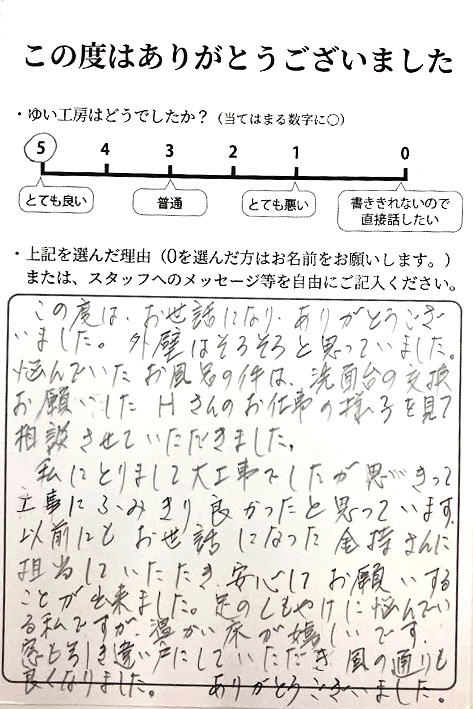 この度はありがとうございました
・ゆい工房はどうでしたか？（当てはまる数字に○）
5 4 3 2 1 0
とても良い 普通 とても悪い 書ききれないので
直接話したい
・上記を選んだ理由（0を選んだ方はお名前をお願いします。）
または、スタッフへのメッセージ等を自由にご記入ください。
この度は、お世話になり、ありがとうござ
いました。外壁はそろそろと思っていました。
悩んでいたお風呂の件は、洗面台の交換
お願いした Hさんのお仕事の様子を見て
相談させていただきました。
私にとりまして大工事でしたが思いきって
工事にふみきり良かったと思っています。
以前にもお世話になった金持さんに
担当していただき安心してお願いする
ことが出来ました。足のしもやけに悩んでい
る私ですが温かい床が嬉しいです。
窓も引き違い戸にしていただき風の通りも
良くなりました。ありがとうございました。